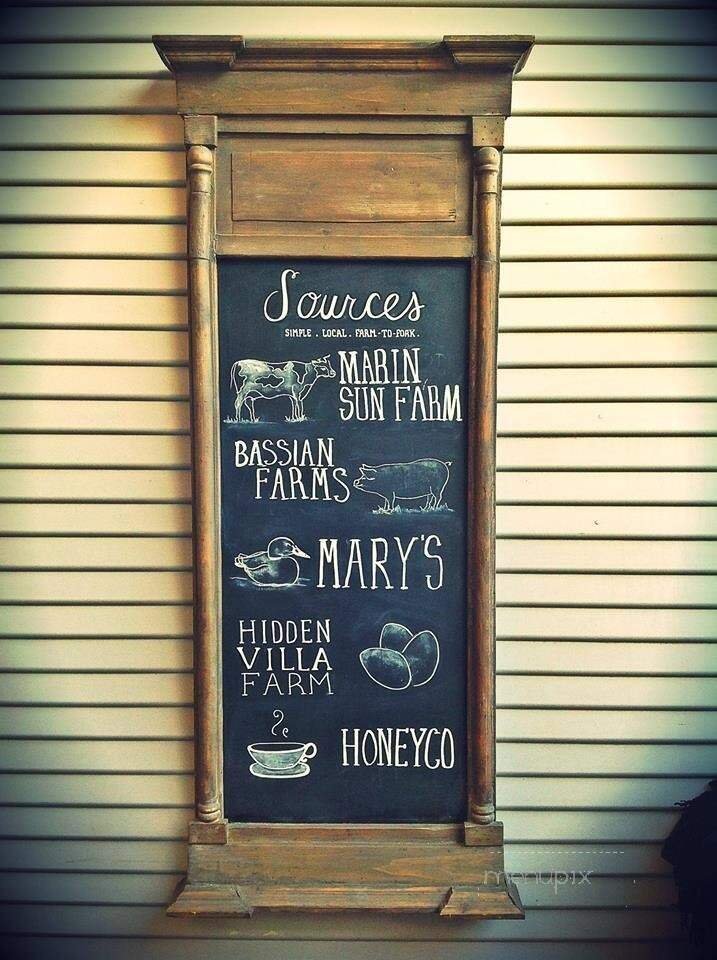 Sources
SIMPLE . LOCAL . FARM-TO-FORK .
MARIN
SUN FARM
BASSIAN
FARMS
MARY'S
HIDDEN
VILLA
FARM
HONEYCO
menupix